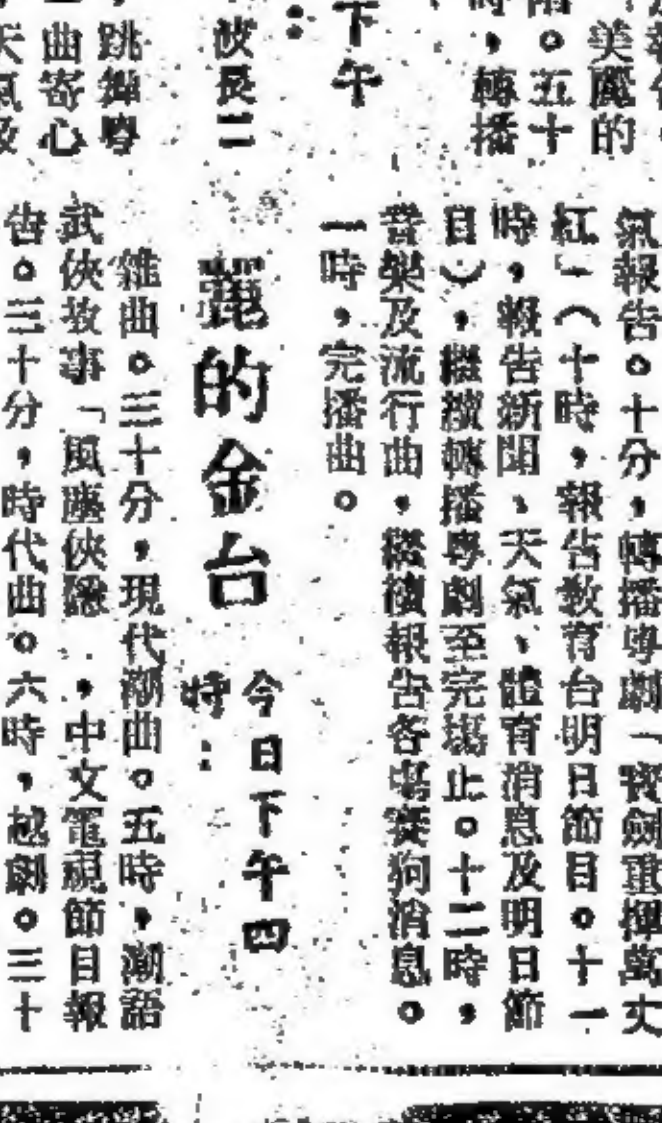 美麗的
。五十
時，轉播
下午
：
波長二
，跳舞粵
曲寄心
天氣報
氣報告。十分，轉播粵劇「寶劍重揮萬丈
紅」（十時，報告教育台明日節目。十一
時，報告新聞、天氣、體育消息及明日節
目），繼續轉播粵劇至完塲止。十二時，
音樂及流行曲，繼續報告各塲賽狗消息。
一時，完播曲。
麗的金台
今日下午四
時：
雜曲。三十分，現代潮曲。五時，潮語
武俠故事「風塵俠隱，中文電視節目報
告。三十分，時代曲。六時，越劇。三十